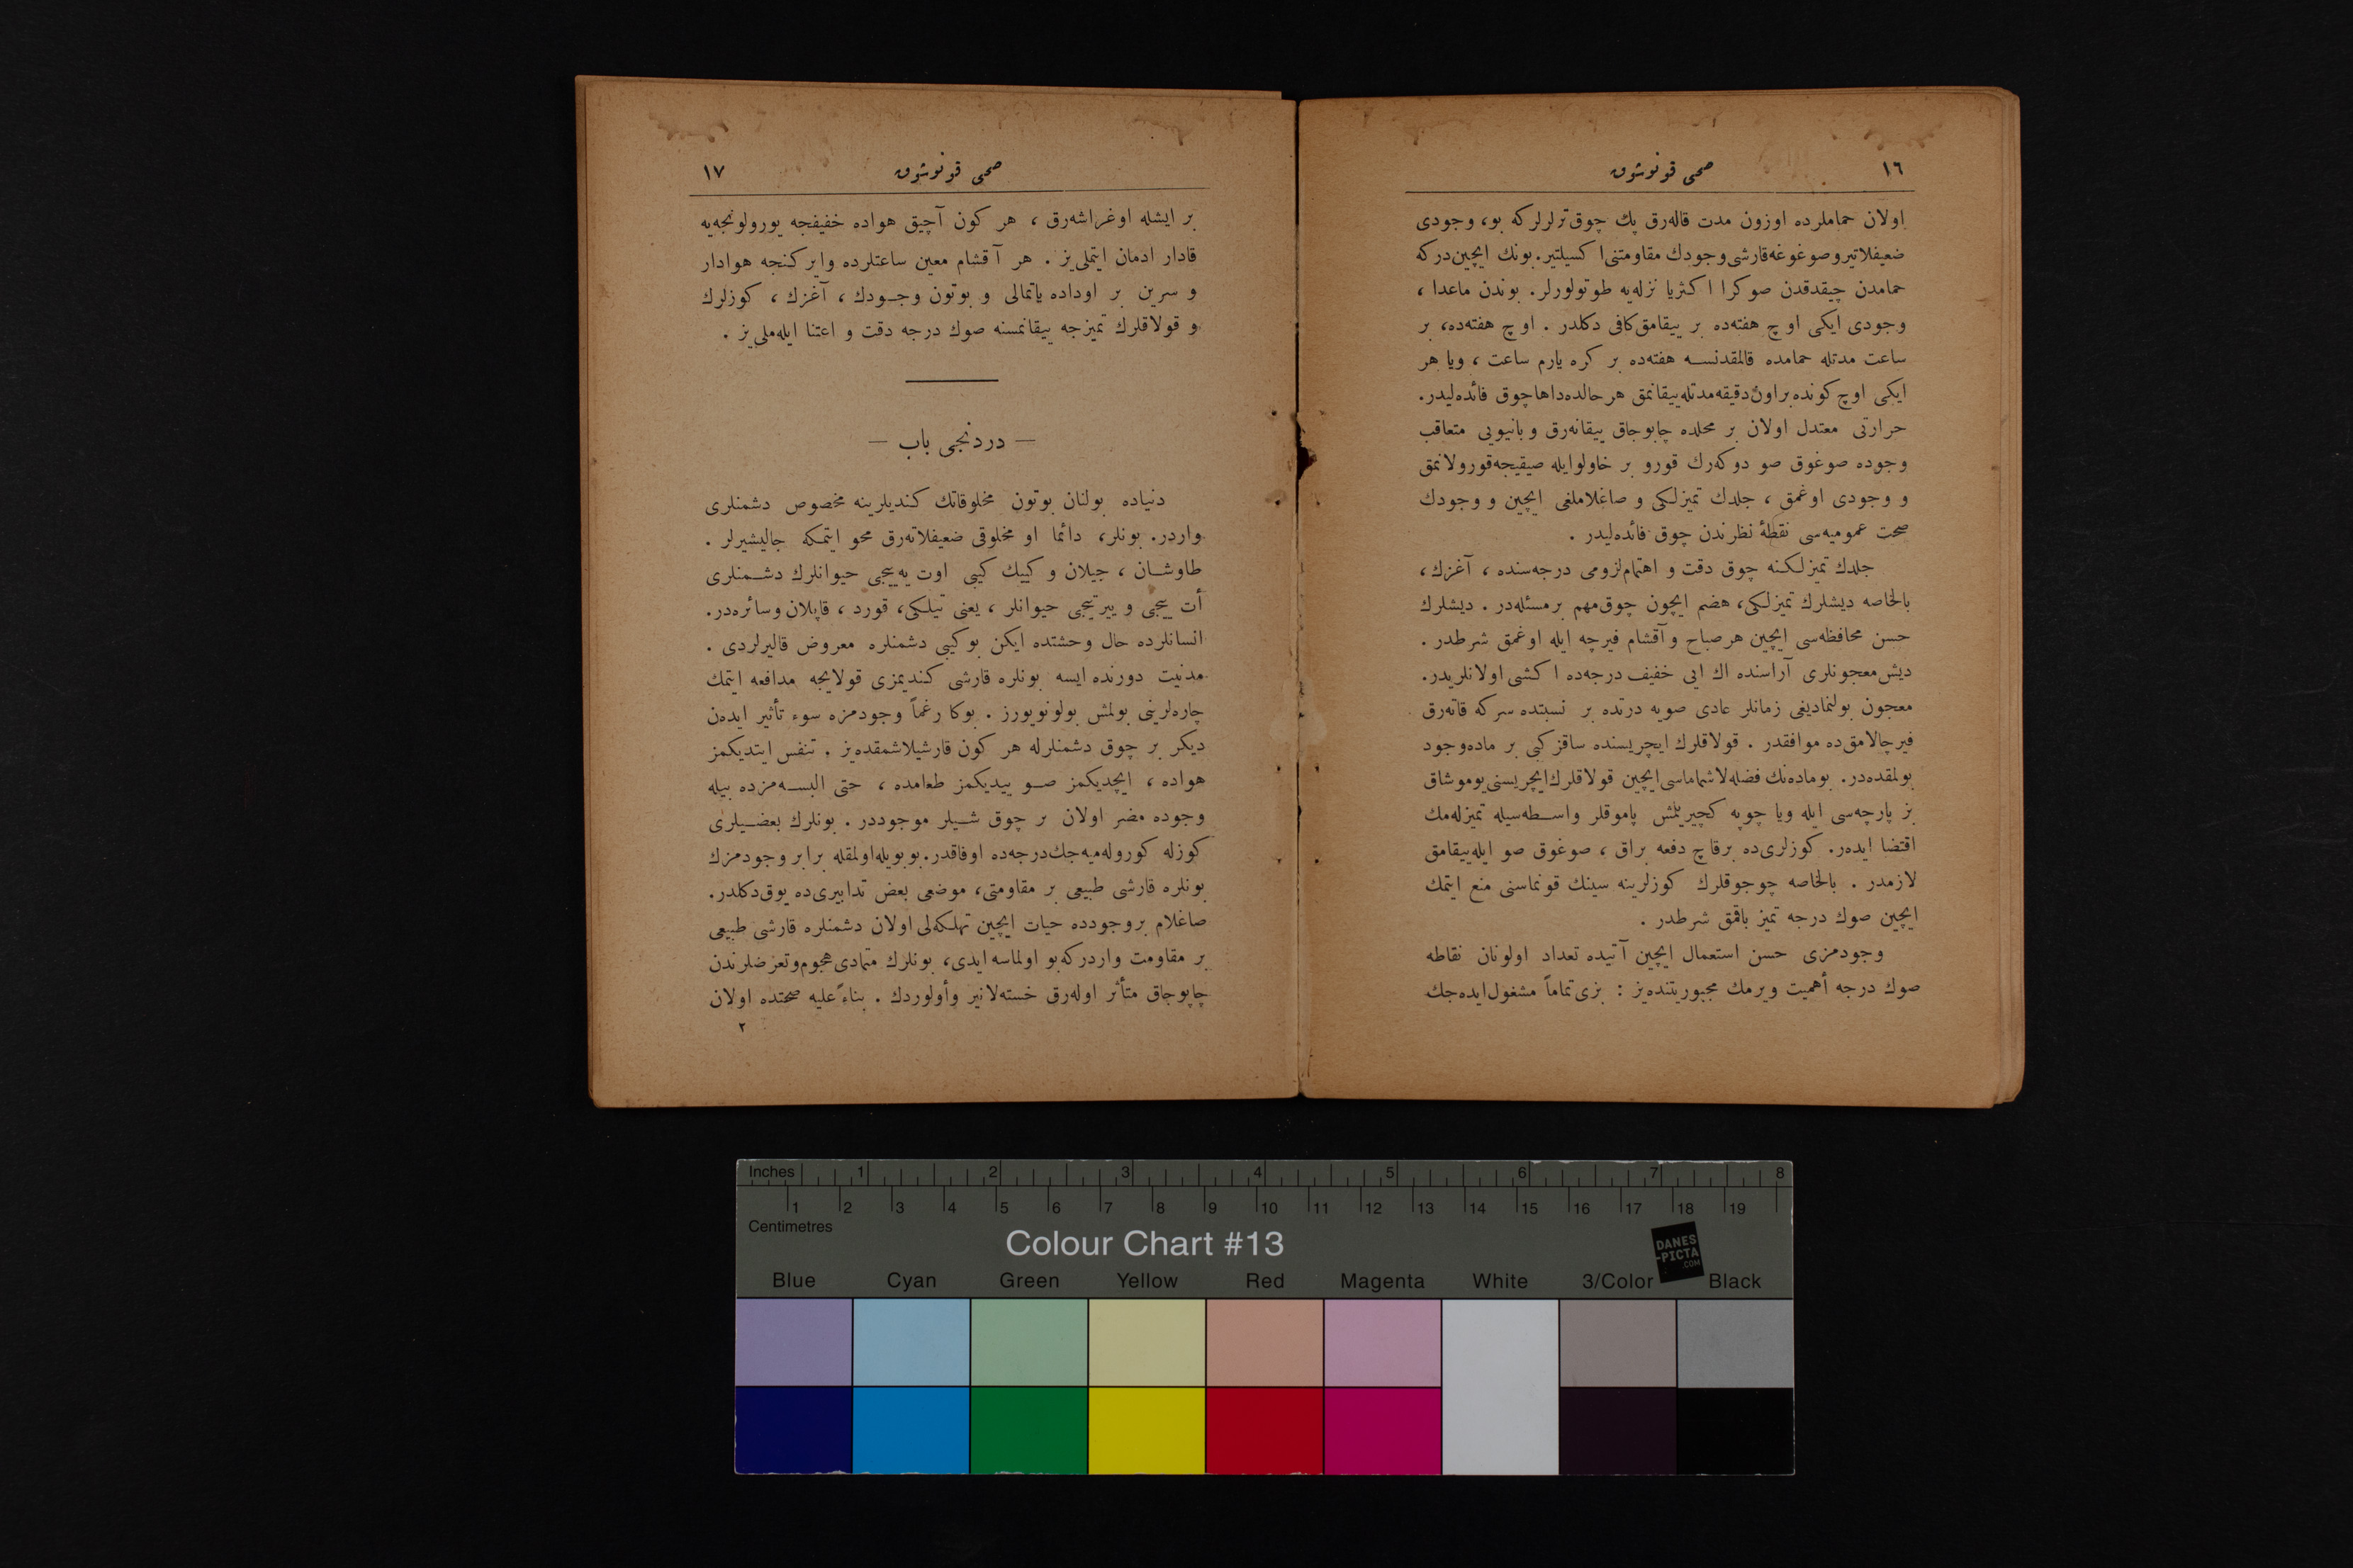 ١٦
صحی قونوشوق
اولان حماملرده اوزون مدت قاله‌رق پك چوق ترلرلركه بو، وجودی
ضعیفلاتیر وصوغوغه قارشی وجودك مقاومتنی اكسیلتیر. بونك ایچین‌دركه
حمامدن چیقدقدن صوكرا اكثریا نزله‌یه طوتولورلر. بوندن ماعدا ،
وجودی ایكی اوچ هفته‌ده بر ییقامق كافی دكلدر . اوچ هفته‌ده، بر
ساعت مدتله حمامده قالمقدنسه هفته‌ده بر كره یارم ساعت ، ویا هر
ایكی اوچ كونده بر اون دقیقه مدتله ییقانمق هر حالده داها چوق فائده‌لیدر.
حرارتی معتدل اولان بر محلده چابوجاق ییقانه‌رق و بانیویی متعاقب
وجوده صوغوق صو دوكه‌رك قورو بر خاولوایله صیقیجه قورولانمق
و وجودی اوغمق ، جلدك تمیزلكی و صاغلاملغی ایچین و وجودك
صحت عمومیه‌سی نقطۀ نظرندن چوق فائده‌لیدر .
جلدك تمیزلكنه چوق دقت و اهتمام لزومی درجه‌سنده ، آغزك ،
بالخاصه دیشلرك تمیزلكی، هضم ایچون چوق مهم بر مسئله‌در . دیشلرك
حسن محافظه‌سی ایچین هر صباح و آقشام فیرچه ایله اوغمق شرطدر .
دیش معجونلری آراسنده اك ایی خفیف درجه‌ده اكشی اولانلریدر.
معجون بولنمادیغی زمانلر عادی صویه درتده بر نسبتده سركه قاته‌رق
فیرچالامق‌ده موافقدر . قولاقلرك ایچریسنده ساقز كبی بر ماده وجود
بولمقده‌در. بوماده‌نك فضله‌لاشماماسی ایچین قولاقلرك ایچریسنی یوموشاق
بز پارچه‌سی ایله ویا چوپه كچیریلمش پاموقلر واسطه‌سیله تمیزله‌مك
اقتضا ایده‌ر. كوزلری‌ده برقاچ دفعه براق ، صوغوق صو ایله ییقامق
لازمدر . بالخاصه چوجوقلرك كوزلرینه سینك قونماسنی منع ایتمك
ایچین صوك درجه تمیز باقمق شرطدر .
وجودمزی حسن استعمال ایچین آتیده تعداد اولونان نقاطه
صوك درجه أهمیت ویرمك مجبوریتنده‌یز : بزی تماماً مشغول ایده‌جك
صحی قونوشوق
١٧
بر ایشله اوغراشه‌رق ، هر كون آچیق هواده خفیفجه یورولونجه‌یه
قادار ادمان ایتملی‌یز . هر آقشام معین ساعتلرده وایركنجه هوادار
و سرین بر اوداده یاتمالی و بوتون وجودك ، آغزك ، كوزلرك
و قولاقلرك تمیزجه ییقانمسنه صوك درجه دقت و اعتنا ایله‌ملی‌یز .
— دردنجی باب —
دنیاده بولنان بوتون مخلوقاتك كندیلرینه مخصوص دشمنلری
واردر. بونلر، دائما او مخلوقی ضعیفلاته‌رق محو ایتمكه جالیشیرلر .
طاوشان ، جیلان و كییك كیبی اوت یه‌ییجی حیوانلرك دشمنلری
أت ییجی و ییرتیجی حیوانلر ، یعنی تیلكی، قورد ، قاپلان وسائره‌در.
انسانلرده حال وحشتده ایكن بو كیبی دشمنلره معروض قالیرلردی .
مدنیت دورنده ایسه بونلره قارشی كندیمزی قولایجه مدافعه ایتمك
چاره‌لرینی بولمش بولونویورز . بوكا رغماً وجودمزه سوء تأثیر ایده‌ن
دیكر بر چوق دشمنلرله هر كون قارشیلاشمقده‌یز . تنفس ایتدیكمز
هواده ، ایچدیكمز صو ییدیكمز طعامده ، حتی البسه‌مزده بیله
وجوده مضر اولان بر چوق شیلر موجوددر . بونلرك بعضیلری
كوزله كوروله‌میه‌جك درجه‌ده اوفاقدر. بو بویله اولمقله برابر وجودمزك
بونلره قارشی طبیعی بر مقاومتی، موضعی بعض تدابیری‌ده یوق دكلدر.
صاغلام بر وجودده حیات ایچین تهلكه‌لی اولان دشمنلره قارشی طبیعی
بر مقاومت واردركه بو اولماسه ایدی، بونلرك متمادی هجوم و تعرضلرندن
چاپوجاق متأثر اوله‌رق خسته‌لانیر و أولوردك . بناءً علیه صحتده اولان
٢
Inches 1 2 3 4 5 6 7 8
1 2 3 4 5 6 7 8 9 10 11 12 13 14 15 16 17 18 19
Centimetres
Colour Chart #13
DANES
-PICTA
.COM
Blue Cyan Green Yellow Red Magenta White 3/Color Black